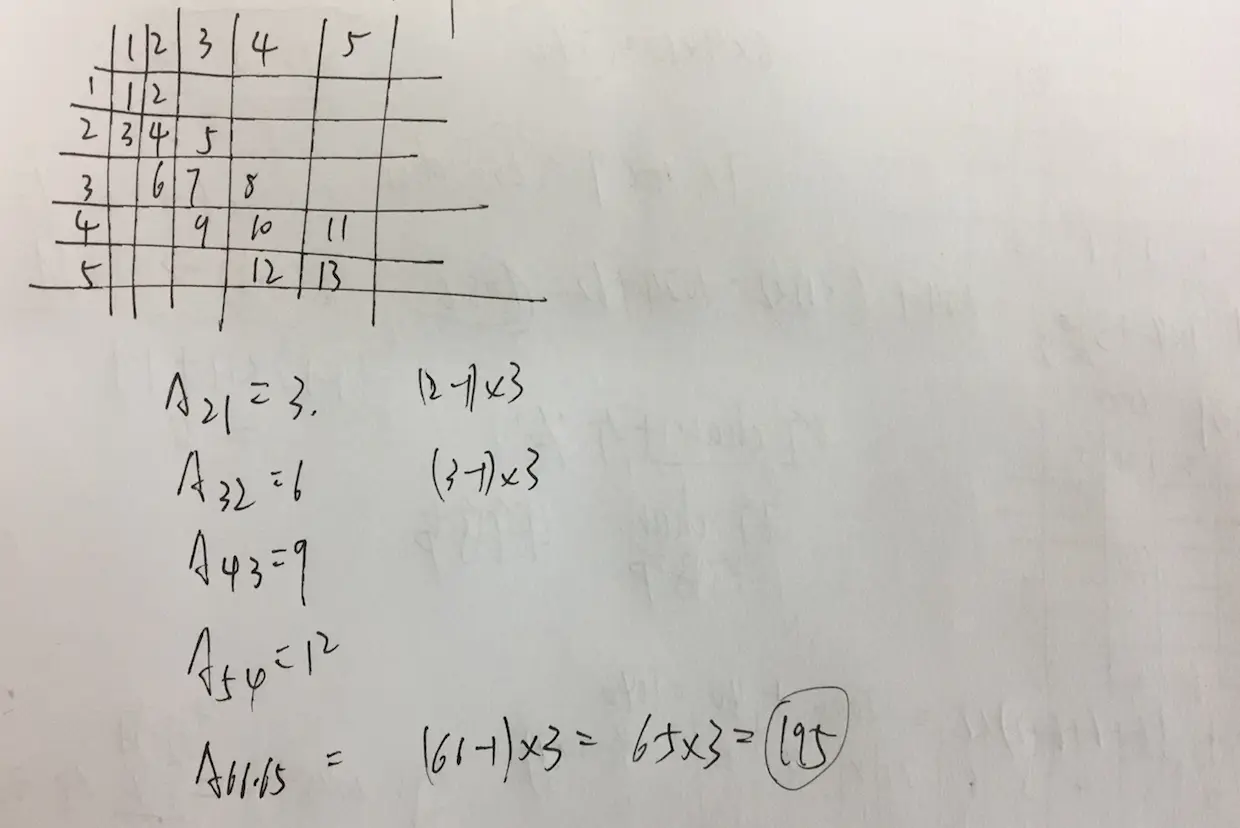 1 2 3 4 5
1 1 2
2 3 4 5
3 6 7 8
4 9 10 11
5 12 13
A21 = 3. (2-1)×3
A32 = 6 (3-1)×3
A43 = 9
A54 = 12
A66.65 = (66-1)×3 = 65×3 = 195